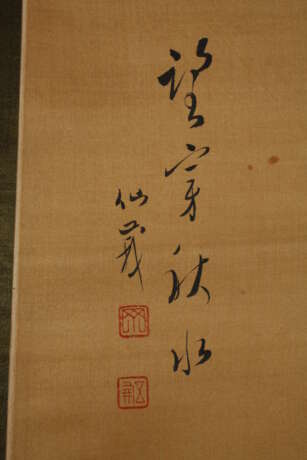 望穿秋水
仙峩